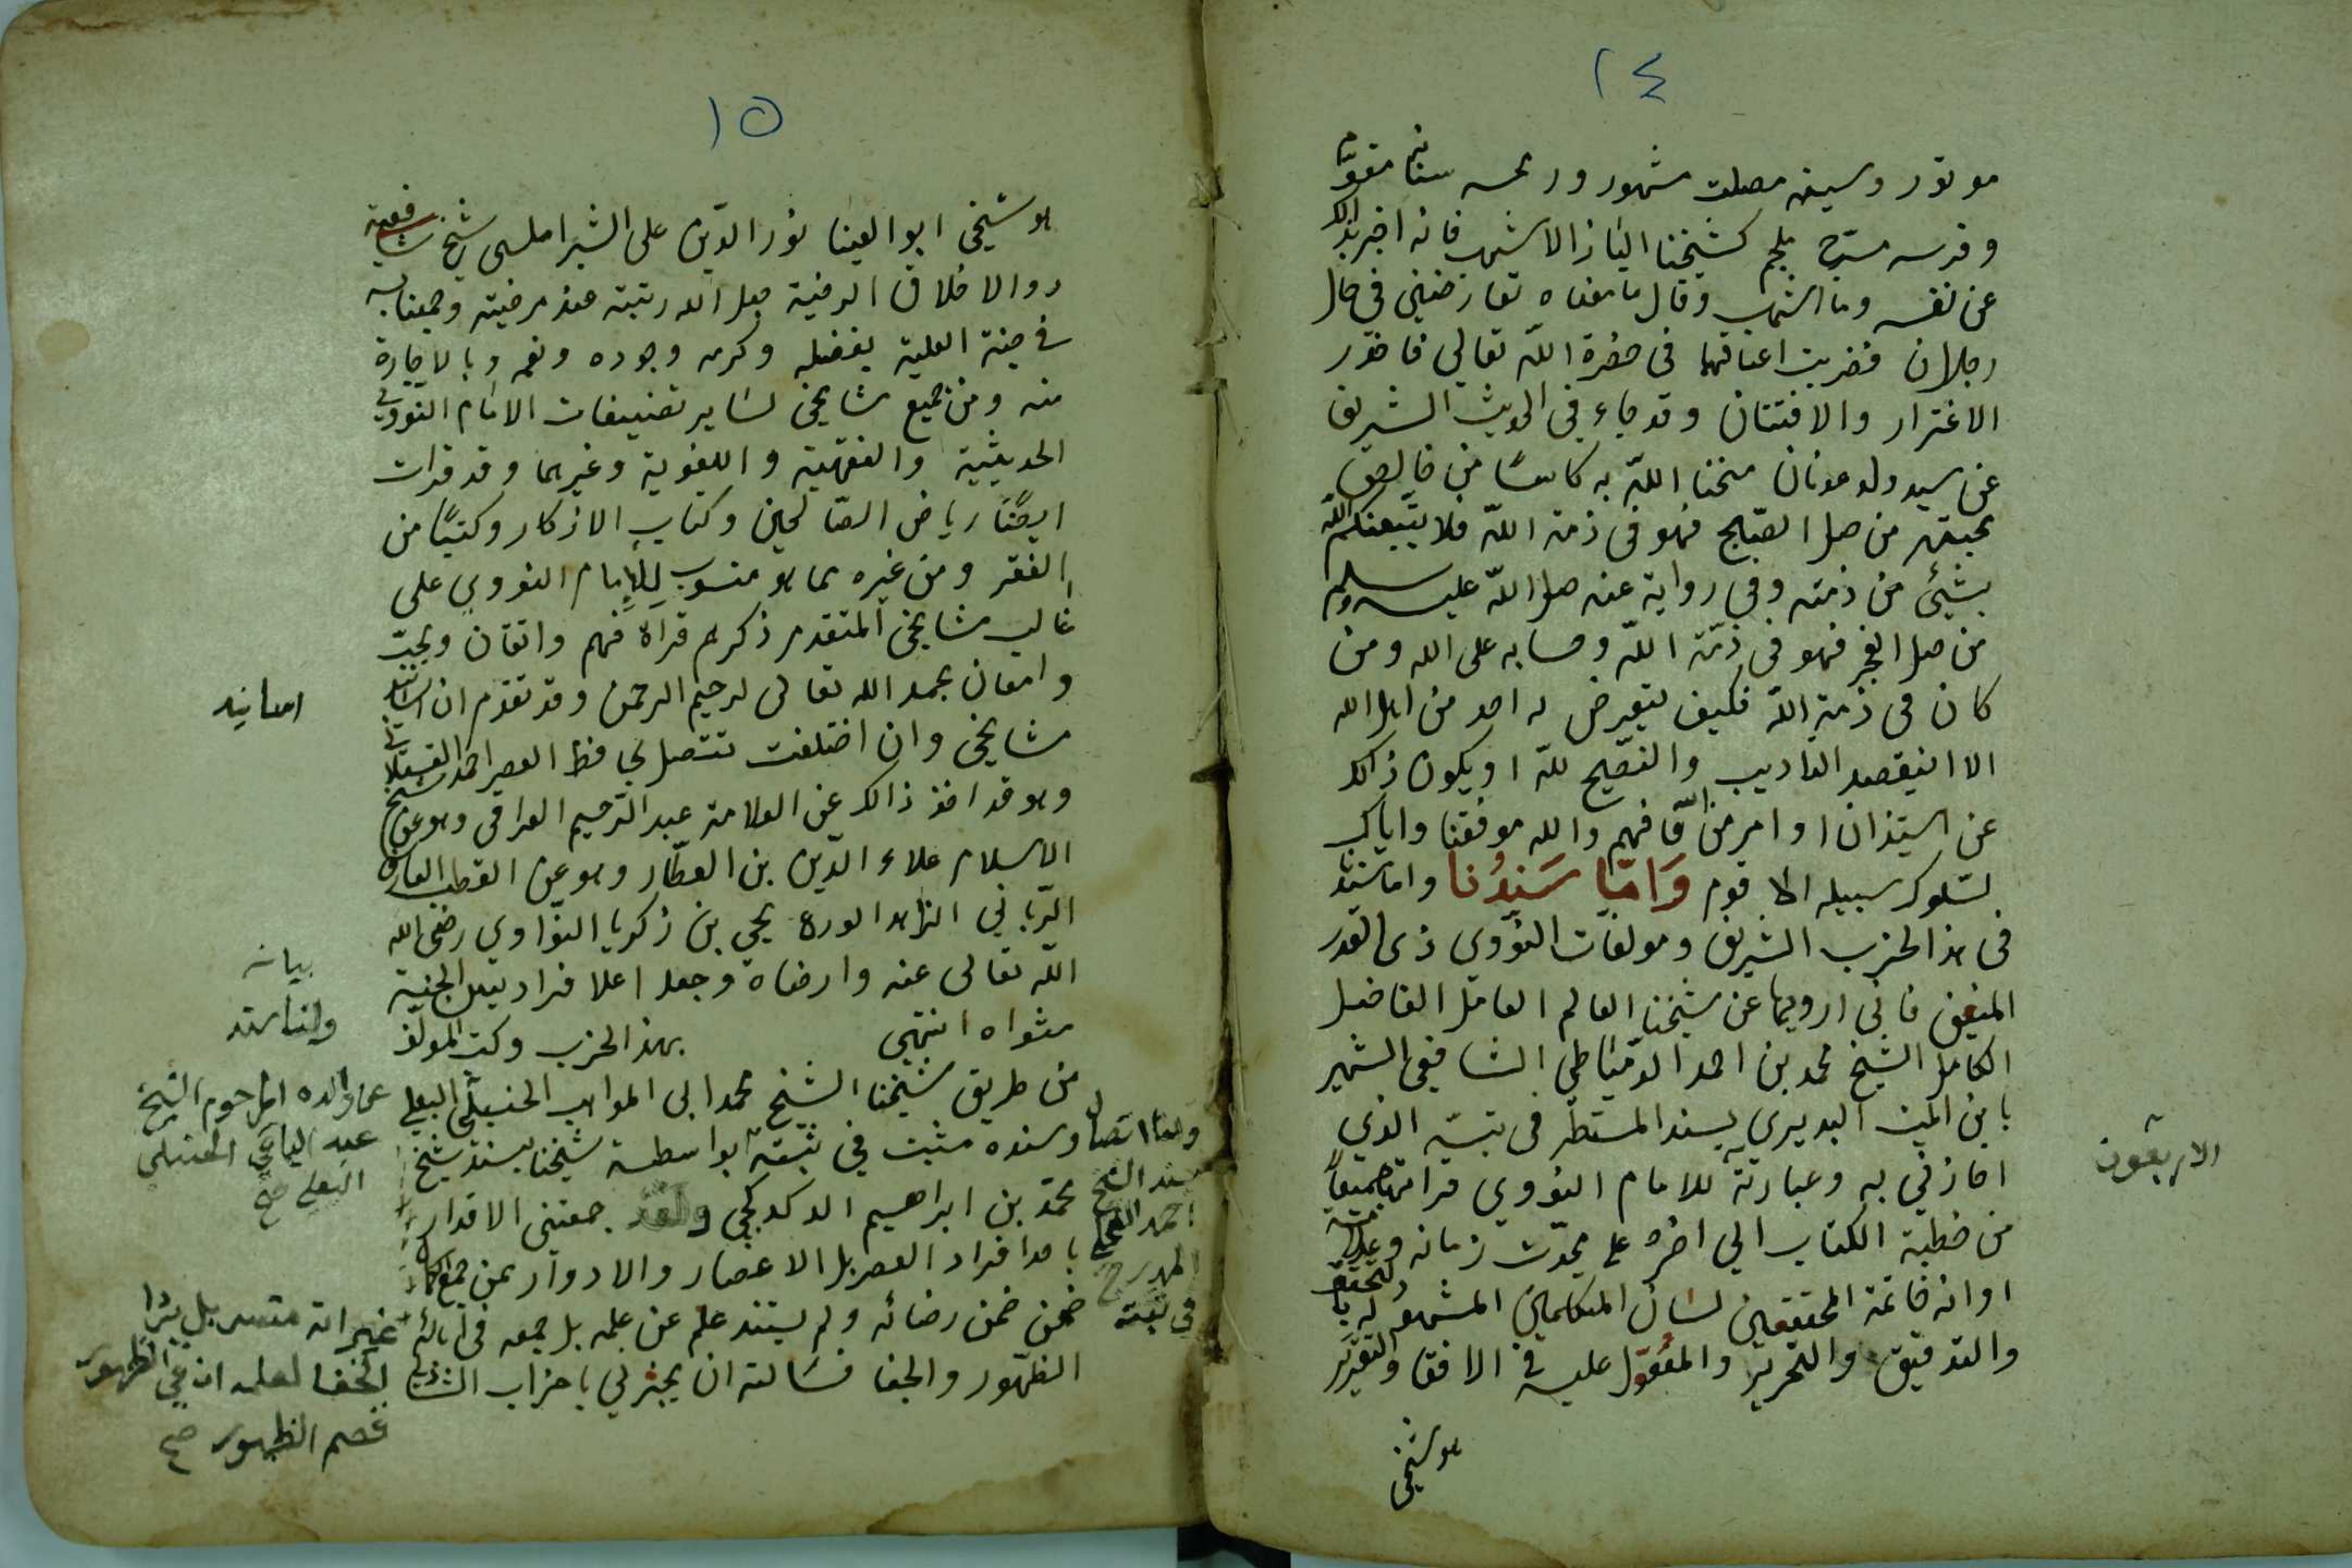 ١٤
موتور وسيفه مصلت مشهور ورمحه سنانه مقوّم
وفرسه مسرّج ملجم كشيخنا الباز الاشهب فانه اخبر بذالك
عن نفسه وقال ما معناه تعارضني في حال
رجلان فضربت اعناقهما في حضرة الله تعالى فاحذر
الاغترار والافتتان وقد جاء في الحديث الشريف
عن سيد ولد عدنان منحنا الله به كاسًا من خالص
محبته من صلى الصبح فهو في ذمة الله فلا يتبعنكم الله
بشيئ من ذمته وفي رواية عنه صلى الله عليه وسلم
من صلى الفجر فهو في ذمّة الله وحسابه على الله ومن
كان في ذمة الله فكيف يتعرض له احد من اهل الله
الا ان يقصد التاديب والنصيح لله او يكون ذالك
عن استيذان او امر من الله فافهم والله موفقنا واياك
لسلوك سبيله الاقوم وَامّا سَندُنا واما سندنا
في هذا الحزب الشريف ومولفات النووي ذى القدر
المنيف فاني ارويها عن شيخنا العالم العامل الفاضل
الكامل الشيخ محمد بن احمد الدمياطي الشافعي الشهير
بابن الميت البديري بسنده المستطر في ثبته الذي
اجازني به وعبارته للامام النووي قراتها جميعاً
الاربعون
من خطبة الكتاب الى اخره على محدّث زمانه
اوانه خاتمة المحققين لسان المتكلمين المشهور له بالتحقيق
والتدقيق والتحرير والمعوّل عليه في الافتا والتقرير
هو شيخي
١٥
هو شيخي ابو الضيا نور الدّين على الشبراملسي شيخ شافعية
ذو الاخلاق الرضية جعل الله رتبته عنده مرضية وجمعنا به
في جنته العلية بفضله وكرمه وجوده ونعمه وبالاجازة
منه ومن جميع مشايخي لساير تصنيفات الامام النووي
الحديثية والفقهية واللغوية وغيرهما وقد قرات
ايضًا رياض الصّالحين وكتاب الاذكار وكتبًا من
الفقه ومن غيره مما هو منسوب للإمام النووي على
غالب مشايخي المتقدم ذكرهم قراة فهم واتقان وبحث
وامعان بحمد الله تعالى الرحيم الرحمن وقد تقدم ان اسانيد
اسانيد
مشايخي وان اختلفت تتصل بحافظ العصر احمد العسقلاني
وهو قد اخذ ذالك عن العلامة عبد الرّحيم العراقي وهو عن شيخ
الاسلام علاء الدّين بن العطّار وهو عن القطب العارف
الرّباني الزاهد الورع يحيى بن زكريا النوّاوي رضى الله
الله تعالى عنه وارضاه وجعل اعلا فراديس الجنة
مثواه انتهى بهذا الحزب وكتب المولف
بيانه
ولنا سند
من طريق شيخنا الشيخ محمد ابى المواهب الحنبلي البعلي
عن والده المرحوم الشيخ
عبد الباقي الحنبلي
البعلي صح
وسنده مثبت في ثبته بواسطة شيخنا بسند شيخ
ولنا اتصال
بسند الشيخ
احمد النخلي
المدرج
في ثبته
محمد بن ابراهيم الدكدكجي ولقد جمعتني الاقدار
باحد افراد العصر بل الاعصار والادوار
ضمن ضمن رضائه ولم يستند علم عن علمه بل جمعه
الظهور والخفا فسالته ان يجيزني باحزاب الشاذلي
الخفا لعله ان في الظهور
قصم الظهور صح